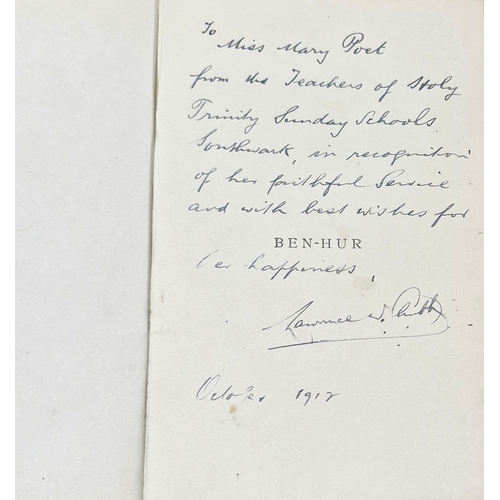 To
Miss Mary Poet
from the Teachers of Holy
Trinity Sunday Schools,
Southwark, in recognition
of her faithful Service
and with best wishes for
BEN-HUR
her happiness,
Lawrence W.
October 1912